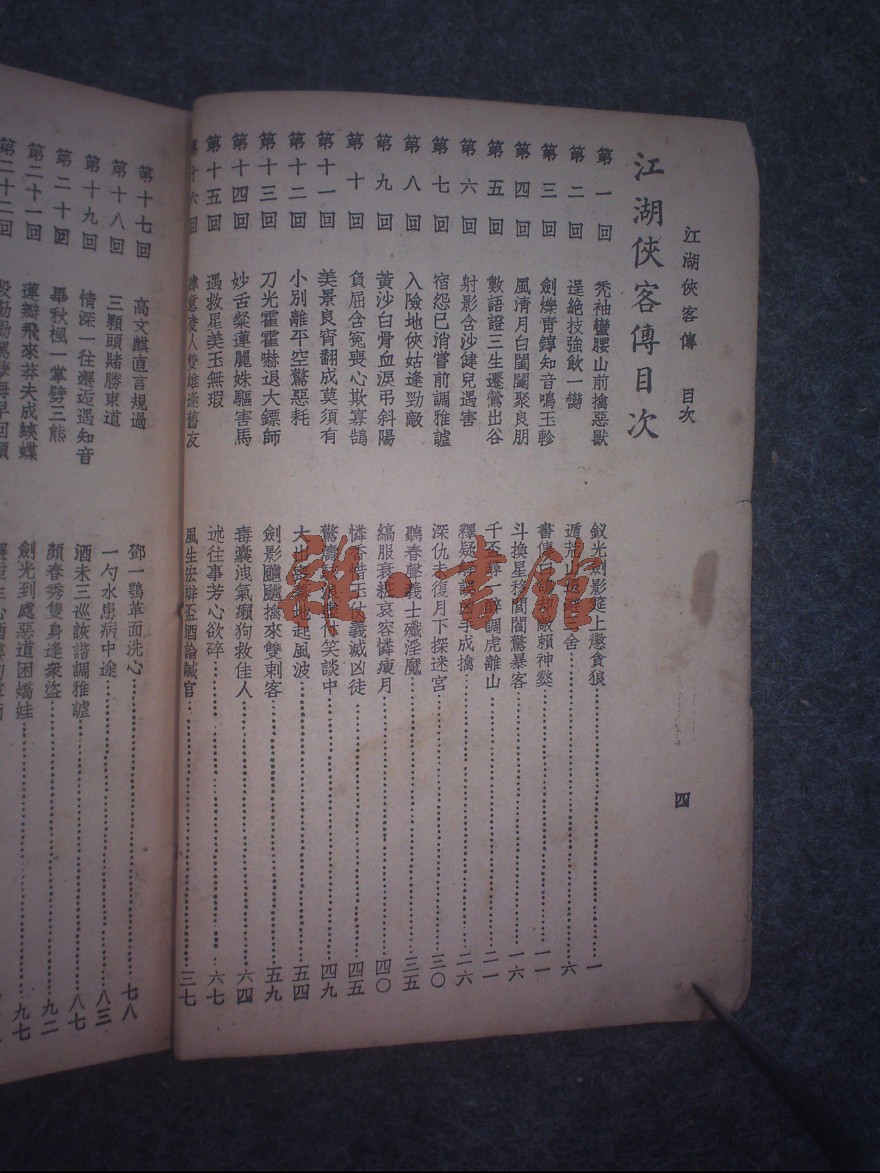 江湖俠客傳 目次 四
江湖俠客傳目次
第一回 禿袖蠻腰山前擒惡獸 釵光劍影筵上懲貪狼 一
第二回 逞絕技強飲一臠 遁荒山 舍 六
第三回 劍爍青錞知音鳴玉軫 書傳 敵賴神獒 一一
第四回 風清月白閨闥聚良朋 斗換星移閭閻驚暴客 一六
第五回 數語證三生遷鶯出谷 千盃尋一醉調虎離山 二一
第六回 射影含沙健兒遇害 釋疑 凶手成擒 二六
第七回 宿怨已消嘗前調雅謔 深仇未復月下探迷宮 三〇
第八回 入險地俠姑逢勁敵 聽春聲義士殲淫魔 三五
第九回 黃沙白骨血淚弔斜陽 縞服衰絰哀容憐瘦月 四〇
第十回 負屈含冤喪心欺寡鵠 憐香惜玉仗義滅凶徒 四五
第十一回 美景良宵翻成莫須有 驚濤 笑談中 四九
第十二回 小別離平空驚惡耗 大出 地起風波 五四
第十三回 刀光霍霍嚇退大鏢師 劍影颼颼擒來雙刺客 五九
第十四回 妙舌粲蓮麗姝驅害馬 毒囊洩氣癩狗救佳人 六四
第十五回 遇救星美玉無瑕 述往事芳心欲碎 六七
第十六回 肆意凌人雙雄逢舊友 風生宏辯盃酒論鹹官 三七
第十七回 高文麒直言規過 鄧一鶚革面洗心 七八
第十八回 三顆頭賭勝東道 一勺水患病中途 八三
第十九回 情深一往邂逅遇知音 酒未三巡詼諧調雅謔 八七
第二十回 畢秋楓一掌劈三熊 顏春秀隻身逢衆盜 九二
第二十一回 蓮瓣飛來莽夫成蛺蝶 劍光到處惡道困嬌娃 九七
第二十二回
雜·書館